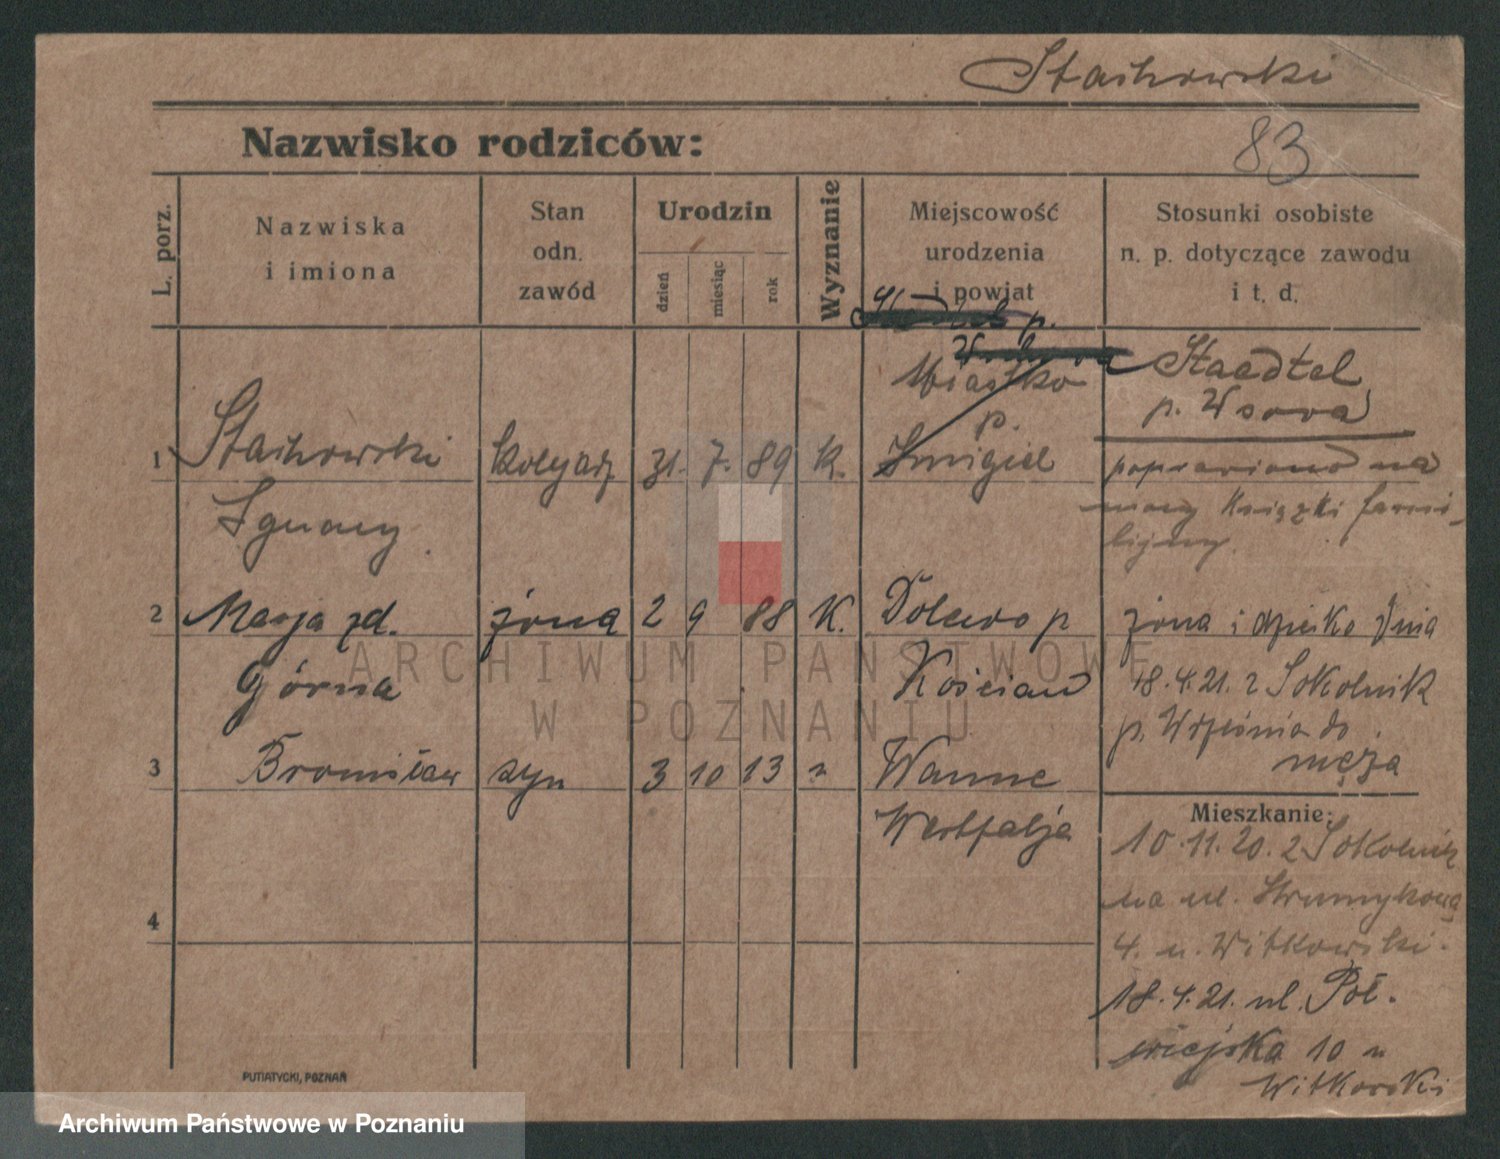 Stachowski
83
Nazwisko rodziców:
L. porz.
Nazwiska
i imiona
Stan
odn.
zawód
Urodzin
dzień
miesiąc
rok
Wyznanie
Miejscowość
urodzenia
i powiat
Stosunki osobiste
n. p. dotyczące zawodu
i t. d.
p.
1
Stachowski
Ignacy
kolejarz
31. 7. 89
K.
Miastko
p.
Śmigiel
Staedtel
p. Wsova
poprawiono na
mocy książki fami-
lijnej.
2
Marja zd.
Górna
żona
2 9 88
K.
Kościan
żona i dziecko dnia
18.4.21. z Sokolnik
p. Września do
męża
3
Bronisław
syn
3 10 13
"
Wanne
Westfalja
Mieszkanie:
10.11.20. z Sokolnik
na ul. Strumykową
4. u. Witkowski.
18.4.21. ul. Pół-
wiejska 10 u
Witkowski
4
PUTIATYCKI, POZNAŃ
ARCHIWUM PAŃSTWOWE
W POZNANIU
Archiwum Państwowe w Poznaniu